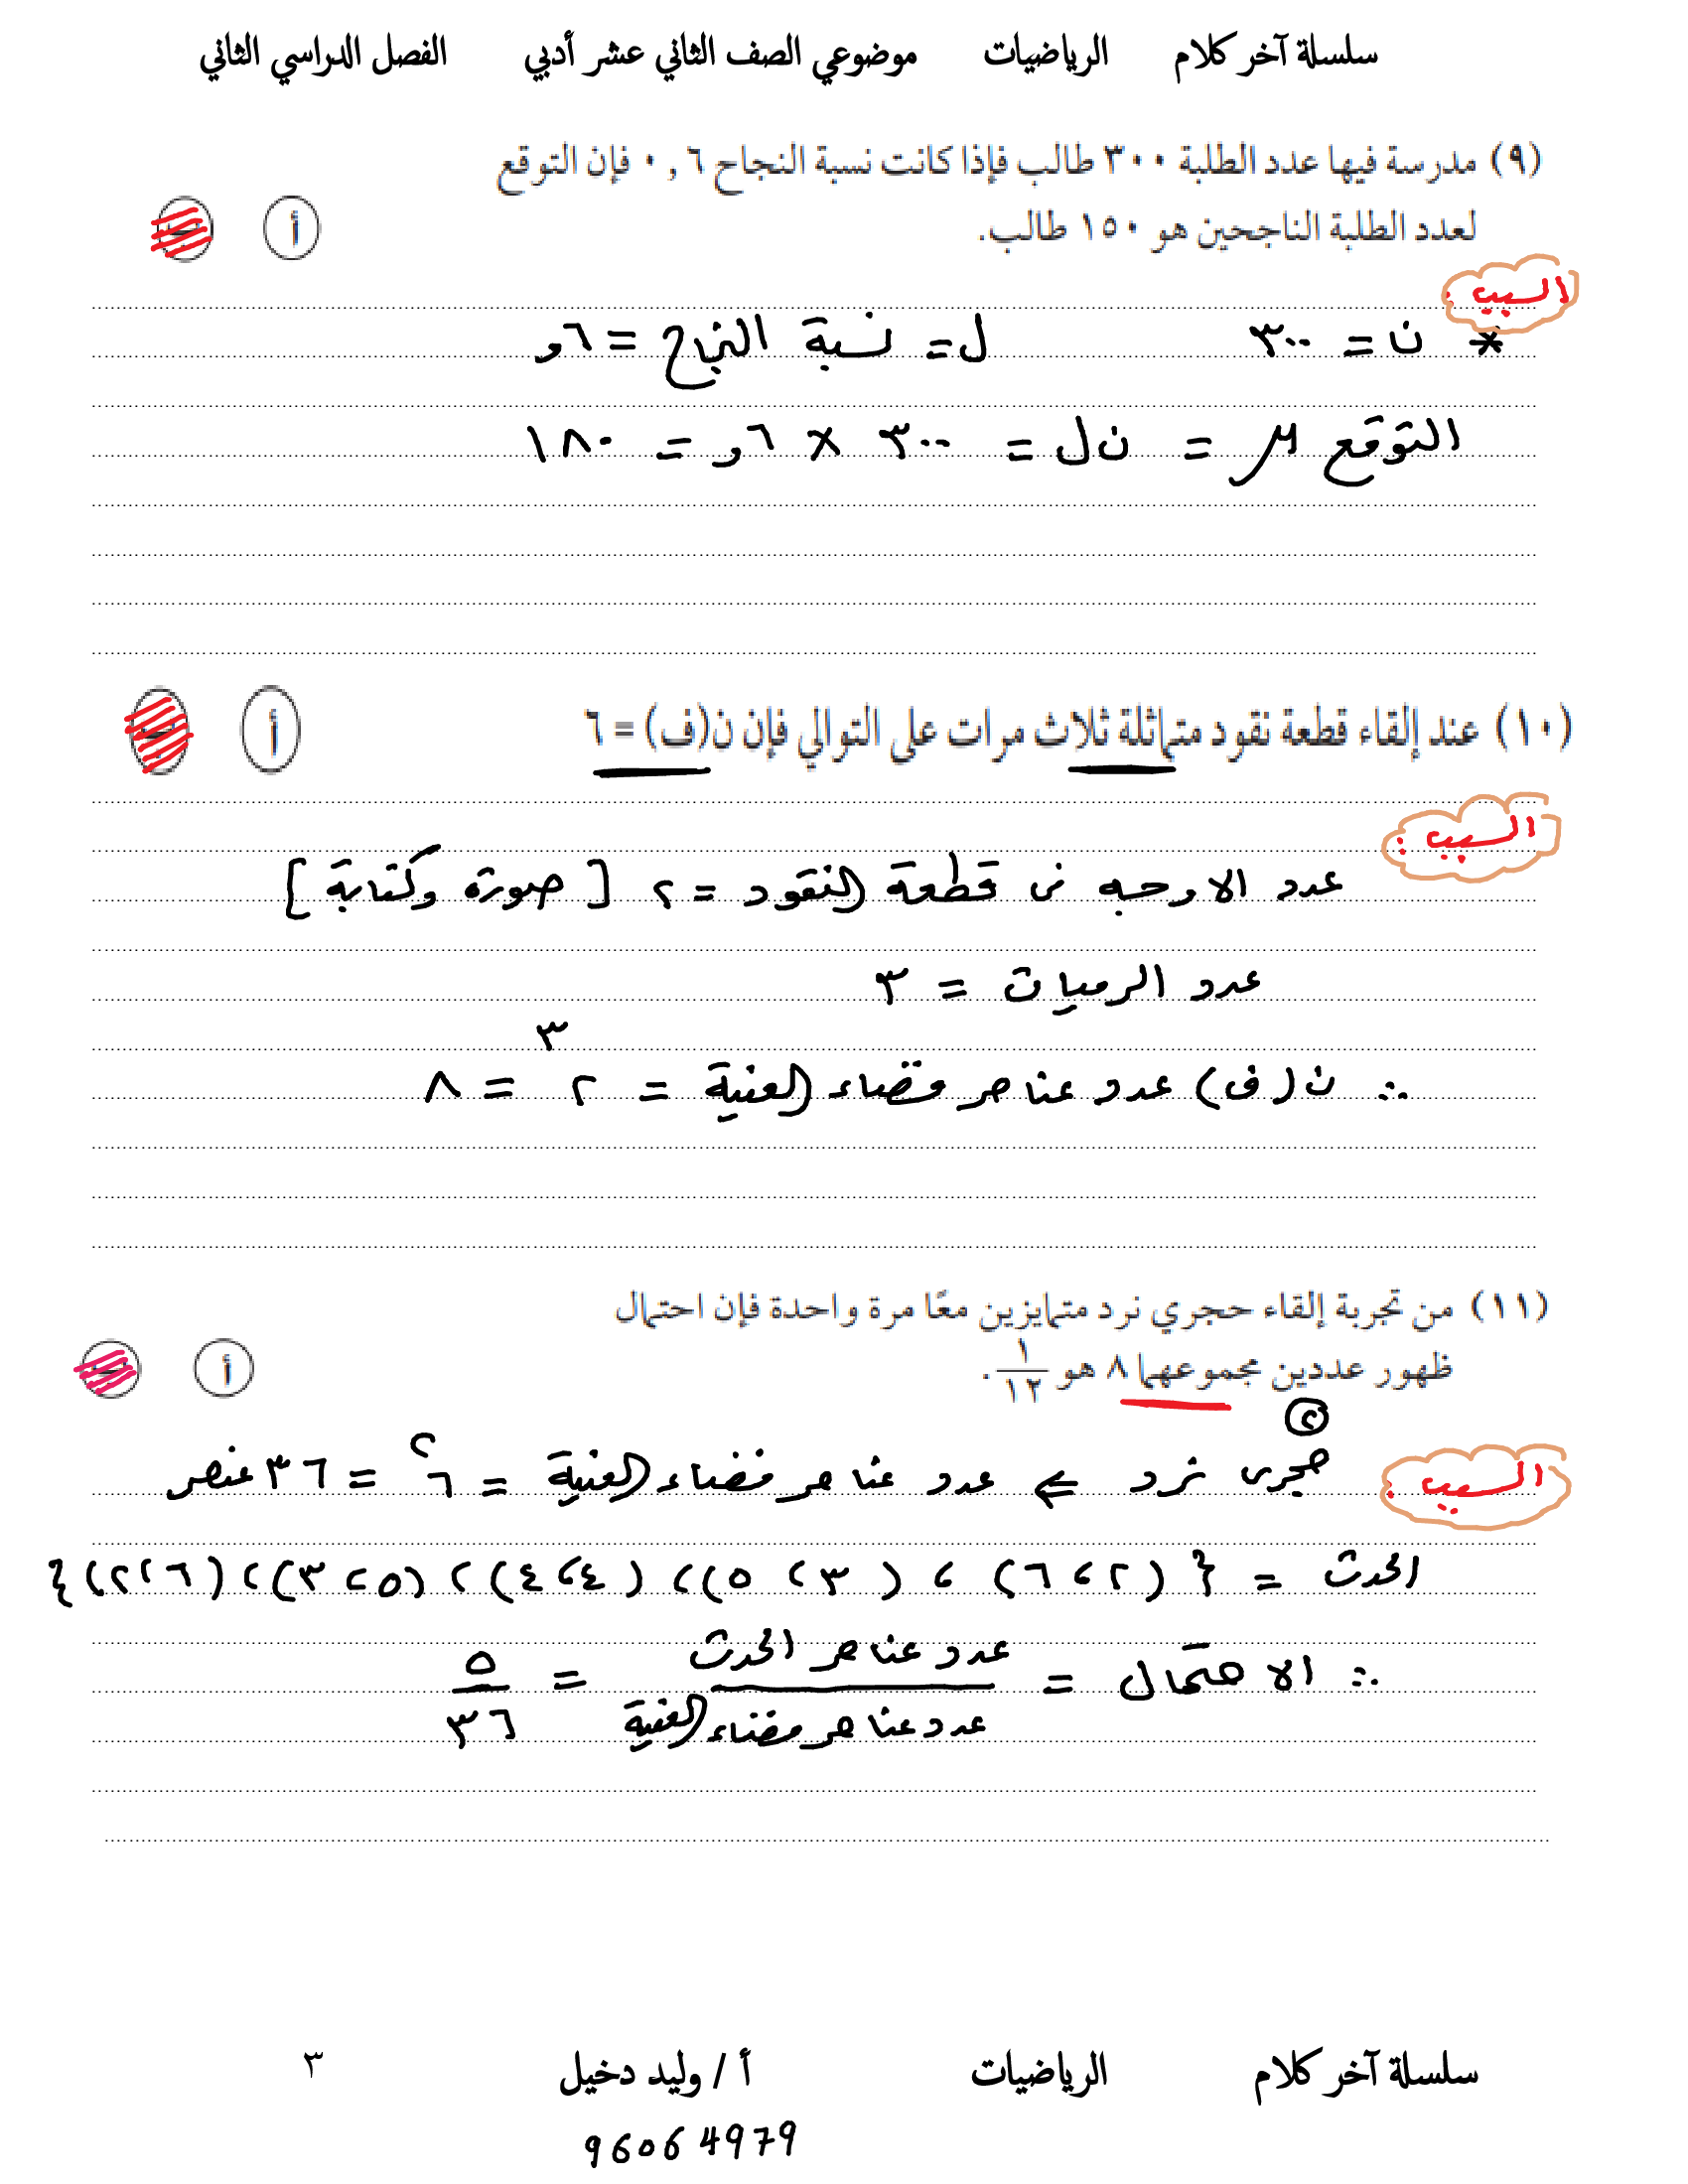 سلسلة آخر كلام الرياضيات موضوعي الصف الثاني عشر أدبي الفصل الدراسي الثاني
(٩) مدرسة فيها عدد الطلبة ٣٠٠ طالب فإذا كانت نسبة النجاح ٦ , ٠ فإن التوقع
لعدد الطلبة الناجحين هو ١٥٠ طالب. أ
السبب :
* ن = ٣٠٠ ل = نسبة النجاح = ٦و
التوقع μ = ن ل = ٣٠٠ × ٦و = ١٨٠
(١٠) عند إلقاء قطعة نقود متماثلة ثلاث مرات على التوالي فإن ن(ف) = ٦ أ
السبب :
عدد الاوجه فى قطعة النقود = ٢ [ صورة وكتابة ]
عدد الرميات = ٣
∴ ن (ف) عدد عناصر فضاء العنية = ٢^٣ = ٨
(١١) من تجربة إلقاء حجري نرد متمايزين معًا مرة واحدة فإن احتمال
ظهور عددين مجموعهما ٨ هو ١/١٢ . أ
٢
السبب :
حجرى نرد ⇐ عدد عناصر فضاء العنية = ٦^٢ = ٣٦ عنصر
الحدث = { (٢ ، ٦) ، (٣ ، ٥) ، (٤ ، ٤) ، (٥ ، ٣) ، (٦ ، ٢) }
∴ الاحتمال = عدد عناصر الحدث / عدد عناصر فضاء العنية = ٥/٣٦
سلسلة آخر كلام الرياضيات أ / وليد دخيل ٣
96064979